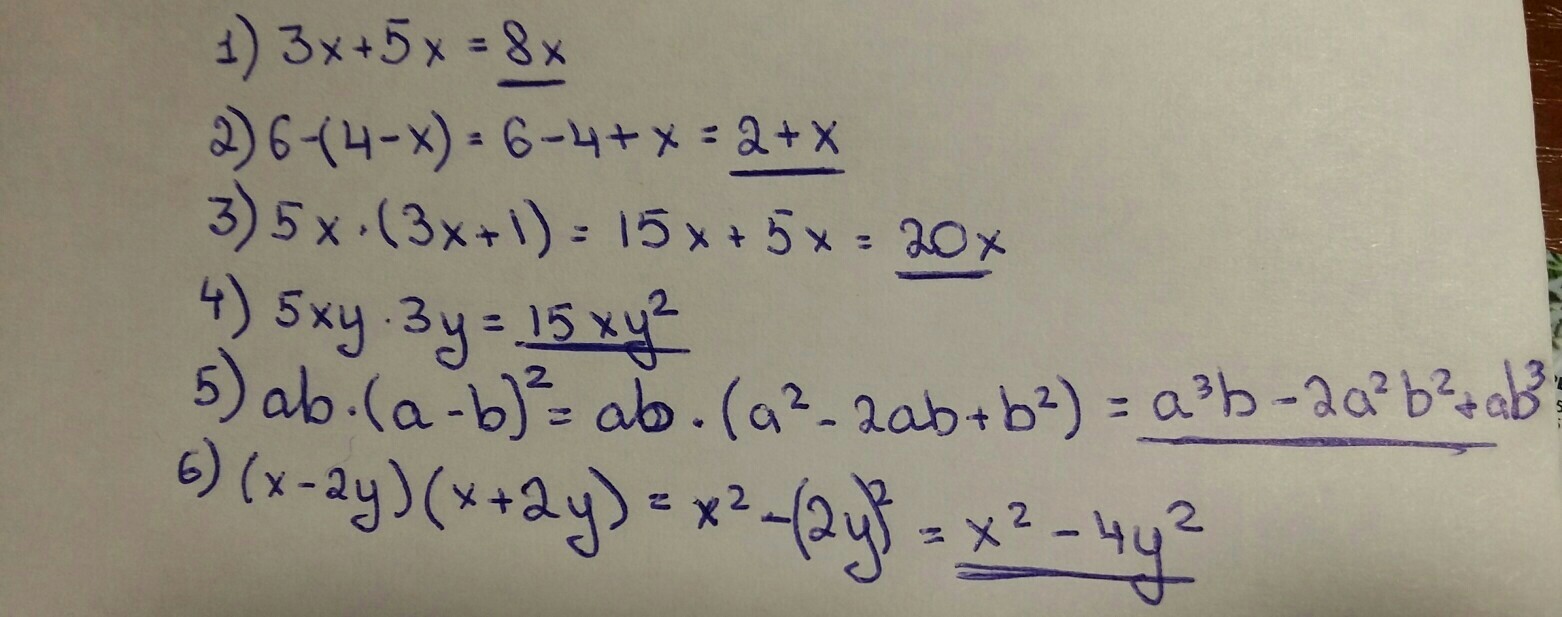 1) 3x+5x = 8x
2) 6-(4-x) = 6-4+x = 2+x
3) 5x·(3x+1) = 15x+5x = 20x
4) 5xy·3y = 15xy²
5) ab·(a-b)² = ab·(a²-2ab+b²) = a³b-2a²b²+ab³
6) (x-2y)(x+2y) = x²-(2y)² = x²-4y²